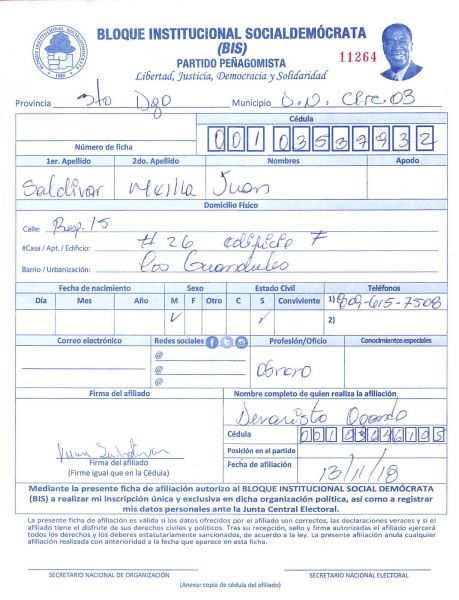 BLOQUE INSTITUCIONAL SOCIALDEMÓCRATA
(BIS)
PARTIDO PEÑAGOMISTA
11264
Libertad, Justicia, Democracia y Solidaridad
BLOQUE INSTITUCIONAL SOCIALDEMOCRATA
Provincia Sto Dgo Municipio D.N. Circ. 03
Cédula
Número de ficha 001 0353793 2
1er. Apellido 2do. Apellido Nombres Apodo
Saldivar Mejilla Juan
Domicilio Físico
Calle: Resp. 15
#Casa / Apt. / Edificio: # 26 edificio 7
Barrio / Urbanización: Los Guandules
Fecha de nacimiento Sexo Estado Civil Teléfonos
Día Mes Año M F Otro C S Conviviente 1) 809-615-7508
2)
Correo electrónico Redes sociales Profesión/Oficio Conocimientos especiales
@
@ Obrero
@
Firma del afiliado Nombre completo de quien realiza la afiliación
Ogando
Cédula
Juan Saldivar
Posición en el partido
Firma del afiliado
(Firme igual que en la Cédula)
Fecha de afiliación 13/11/18
Mediante la presente ficha de afiliación autorizo al BLOQUE INSTITUCIONAL SOCIAL DEMÓCRATA
(BIS) a realizar mi inscripción única y exclusiva en dicha organización política, así como a registrar
mis datos personales ante la Junta Central Electoral.
La presente ficha de afiliación es válida si los datos ofrecidos por el afiliado son correctos, las declaraciones veraces y si el
afiliado tiene el disfrute de sus derechos civiles y políticos. Tras su recepción, sello y firma autorizadas el afiliado ejercerá
todos los derechos y los deberes estatutariamente sancionados, de acuerdo a la ley. La presente afiliación anula cualquier
afiliación realizada con anterioridad a la fecha que aparece en esta ficha.
SECRETARIO NACIONAL DE ORGANIZACIÓN SECRETARIO NACIONAL ELECTORAL
(Anexar copia de cédula del afiliado)